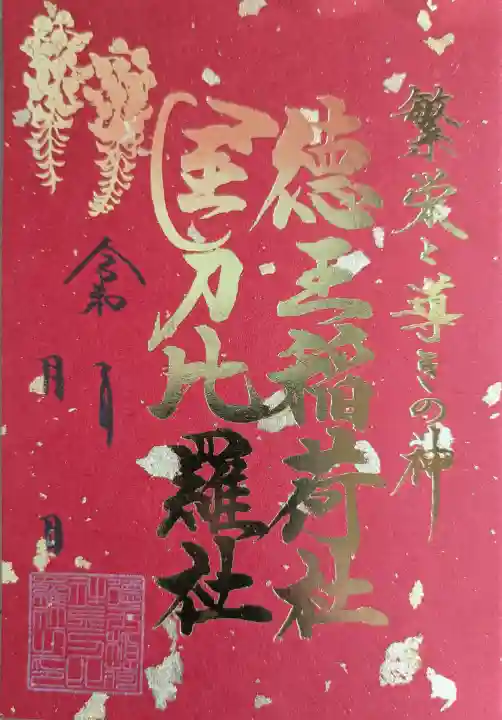 繁栄と導きの神
徳王稲荷社
金刀比羅社
令和
月
日